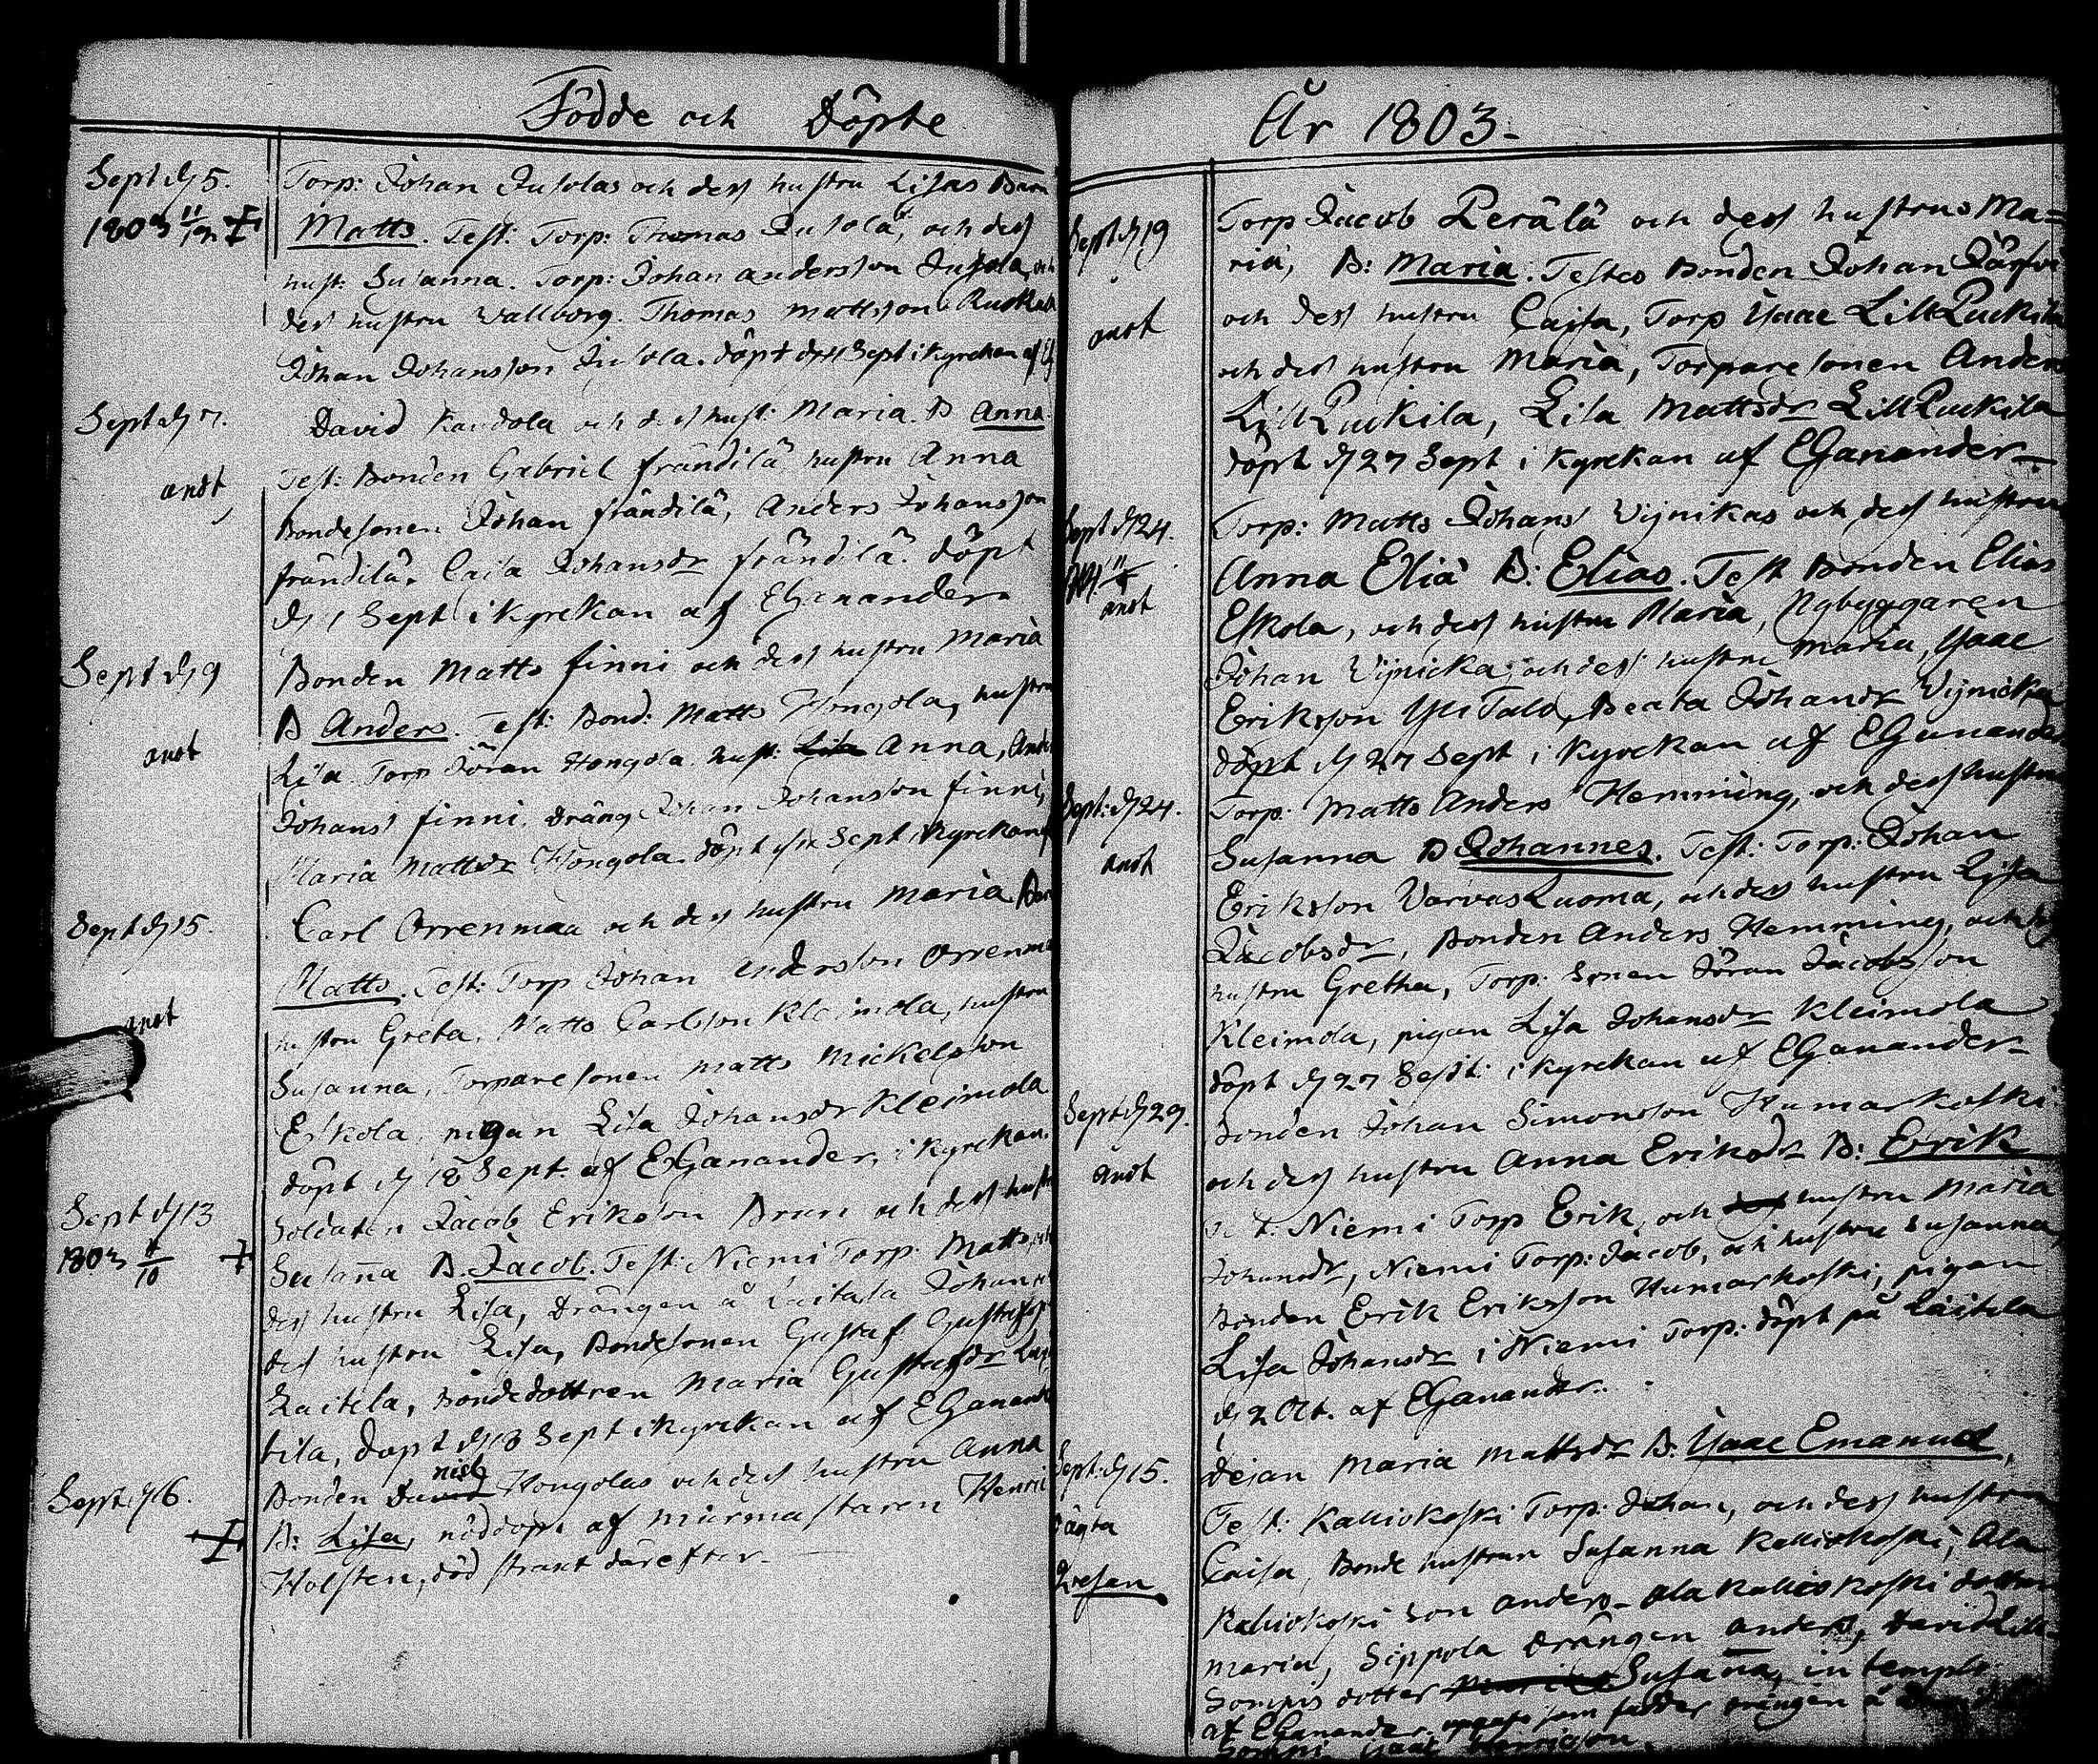 Födde och Döpte
Sept d 5.
1803 11/12 +
Torp: Johan Jusolas och dess hustru Lisas Barn
Matts. Test: Torp: Thomas Jusola, och dess
hust: Susanna. Torp: Johan andersson Jusola, och
des hustru Wallborg. Thomas mattsson
Johan Johansson Jusola. döpt d Sept i kyrckan af
Sept d 7.
anot
David Kandola och des hust: Maria. B Anna
Test: Bonden Gabriel frändilä hustru Anna
Bondesonen Johan frändilä, Anders Johansson
frändilä, Caisa Johansdr frändilä. döpt
d Sept i kyrckan af EGanander
Sept d 9
anot
Bonden Matts finni och des hustru Maria
B Anders. Test: Bond: Matts Hongola, hustru
Lisa Torp Jöran Hongola hust: Lisa Anna,
Johans finni, dräng Johan Johansson finni,
Maria Mattsdr Hongola. döpt Sept i kyrckan af
Sept d 15.
anot
Carl Orrenmaa och des hustru Maria Barn
Matts. Test: Torp Johan andersson
hustru Greta, Matts Carlsson Kleimola, hustru
Susanna, Torparesonen matts Mickelsson
Eskola, pigan Lisa Johansdr Kleimola
döpt d 18 Sept. af EGanander, i kyrckan.
Sept d 13
1803 +
Soldaten Jacob Eriksson Brun och dess hustru
Susanna B. Jacob. Test: Niemi Torp: Matts, och
des hustru Lisa, drängen å Laitala Johan
des hustru Lisa, Bondesonen Gustaf
Laitela, Bondedottren Maria Gustafsdr
tila, döpt d 18 Sept i kyrckan af EGanander
Sept d 16.
+
niels
Bonden David Hongolas och des hustru Anna
B: Lisa, nöddöpt af murmastaren Henric
Holsten, död straxt därefter.
År 1803.
Sept d 19
anot
Torp Jacob Perälä och dess hustrus Ma=
ria, B: Maria. Testes Bonden Johan
och dess hustru Cajsa, Torp Ysaac LillPuckila
och des hustru Maria, Torparesonen Anders
LillPuckila, Lisa Mattsdr LillPuckila
döpt d 27 Sept i kyrckan af EGanander.
Sept d 24.
anot
Torp: Matts Johans Vijnikas och dess hustru
Anna Elia B: Elias. Test Bonden Elias
Eskola, och dess hustru Maria, Nybyggaren
Johan Vijnicka, och dess hustru maria, Ysaac
Eriksson YliTalo, Beata Johansdr Vijnicka
döpt d 27 Sept i kyrckan af EGanander
Sept: d 24.
anot
Torp. Matts Anders Hemming, och dess hustru
Susanna B Johannes. Test: Torp: Johan
Eriksson VarvasLuoma, och des hustru Lisa
Jacobsdr, Bonden Anders Hemming, och
hustru Gretha, Torp: sonen Jöran Jacobsson
Kleimola, pigan Lisa Johansdr Kleimola
döpt d 27 Sept: i kyrckan af EGanander.
Sept d 29.
anot
Bonden Johan Simonsson Humarkoski
och dess hustru Anna Eriksdr B: Erik
Niemi Torp Erik, och hustru Maria
Johansdr, Niemi Torp: Jacob, och hustru Susanna,
Bonden Erik Eriksson Humarkoski, pigan
Lisa Johansdr i Niemi Torp: döpt på Laitela
d 2 Oct. af EGanander.
Sept: d 15.
oägta
Dejan Maria Mattsdr B: Ysaac Emanuel,
Test: Kalliokoski Torp: Johan, och dess hustru
Caisa, Bonde hustrun Susanna Kalliokoski, Ala
Kalliokoski son anders. Ala Kalliokoski dotter
maria, Sippola drängen anders, David Lill-
Sompis dotter Susanna, in templo
af EGanander. som fadder drängen å
Sompi Isaac Henricsson.